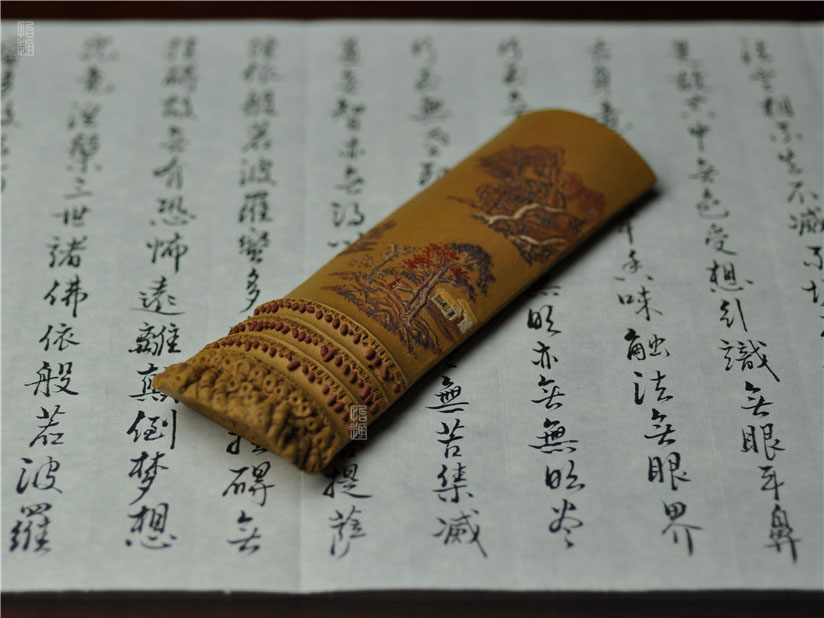 法空相不生不滅不垢
是故空中無色受想行識無眼耳鼻
舌身意香味觸法無眼界
乃至無明亦無無明盡
乃至無老無苦集滅
道無智亦無得以提薩
埵依般若波羅蜜多礙無
罣礙故無有恐怖遠離顛倒梦想
究竟涅槃三世諸佛依般若波羅